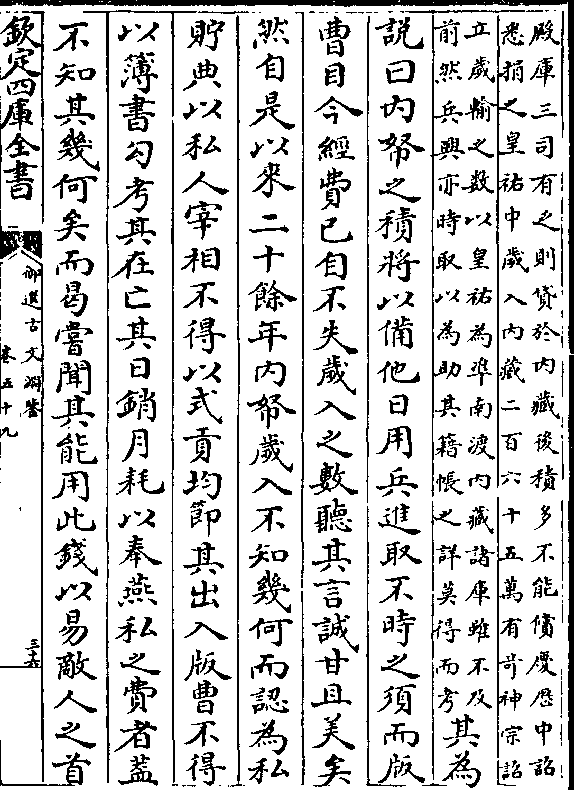 殿庫三司有之則貸於内藏後積多不能償慶歴中詔
悉捐之皇祐中歲入内藏二百六十五萬有竒神宗詔
立歲輸之數以皇祐為準南渡内藏諸庫雖不及
前然兵興亦時取以為助其籍帳之詳莫得而考
其為
説曰内帑之積將以備他日用兵進取不時之須而版
曹目今經費已自不失歲入之數聽其言誠甘且美矣
然自是以來二十餘年内帑歲入不知幾何而認為私
貯典以私人宰相不得以式貢均節其出入版曹不得
以簿書勾考其在亡其日銷月耗以奉燕私之費者蓋
不知其幾何矣而曷嘗聞其能用此錢以易敵人之首
欽定四庫全書
御選古文淵鑒
卷五十九
三十六